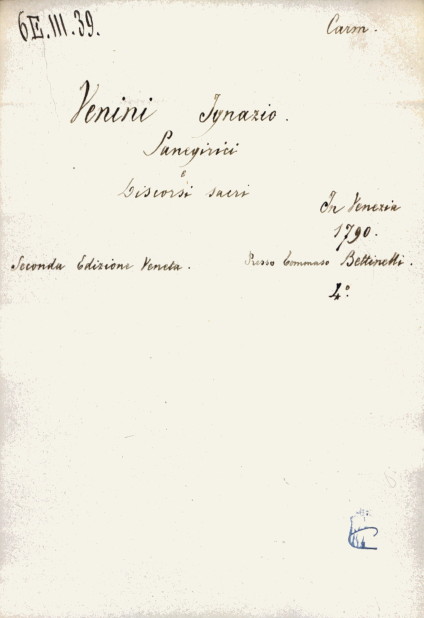 6E.III.39.
Carm.
Venini Ignazio.
Panegirici
e
Discorsi sacri
In Venezia
1790.
Seconda Edizione Veneta. Presso Tommaso Bettinelli.
4º